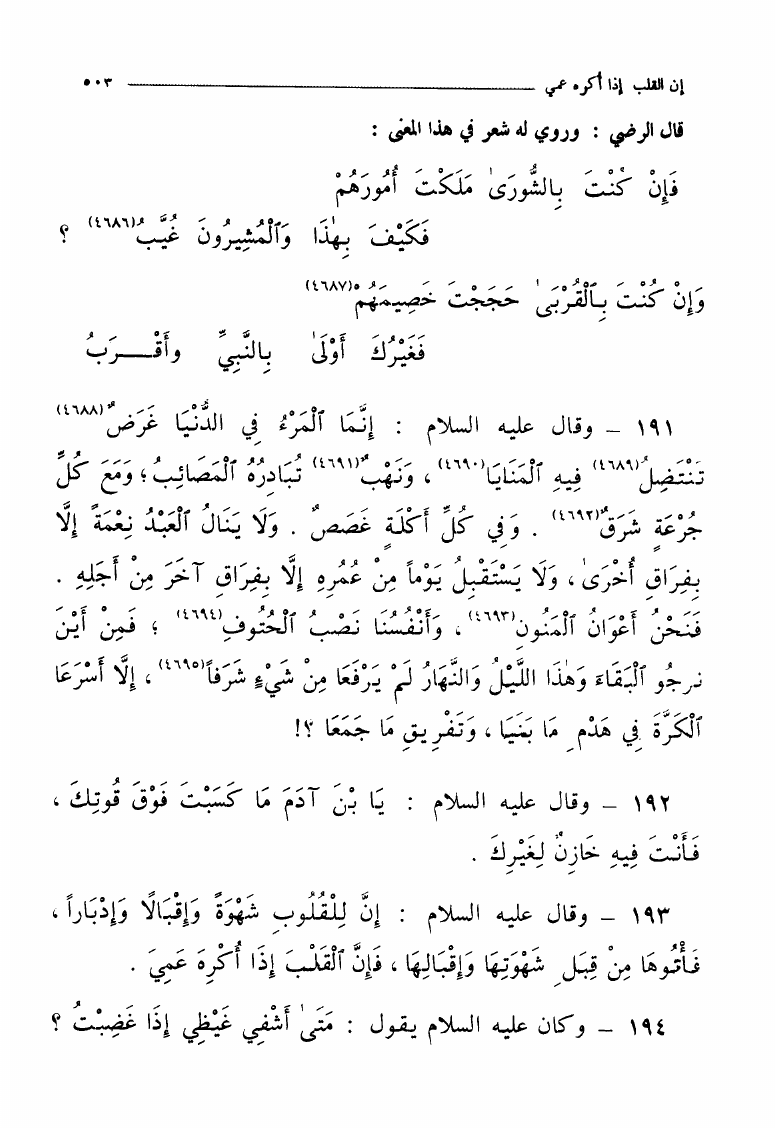 إن القلب إذا أكره عمي ٥٠٣
قال الرضي : وروي له شعر في هذا المعنى :
فَإِنْ كُنْتَ بِالشُّورَىٰ مَلَكْتَ أُمُورَهُمْ
فَكَيْفَ بِهٰذَا وَٱلْمُشِيرُونَ غُيَّبُ(٤٦٨٦) ؟
وَإِنْ كُنْتَ بِٱلْقُرْبَىٰ حَجَجْتَ خَصِيمَهُمْ(٤٦٨٧)
فَغَيْرُكَ أَوْلَىٰ بِالنَّبِيِّ وأَقْـــرَبُ
١٩١ – وقال عليه السلام : إِنَّمَا ٱلْمَرْءُ فِي الدُّنْيَا غَرَضٌ(٤٦٨٨)
تَنْتَضِلُ(٤٦٨٩) فِيهِ ٱلْمَنَايَا(٤٦٩٠) ، وَنَهْبٌ(٤٦٩١) تُبَادِرُهُ ٱلْمَصَائِبُ ؛ وَمَعَ كُلِّ
جُرْعَةٍ شَرَقٌ(٤٦٩٢) . وَفِي كُلِّ أَكْلَةٍ غَصَصٌ . وَلَا يَنَالُ ٱلْعَبْدُ نِعْمَةً إِلَّا
بِفِرَاقِ أُخْرَىٰ ، وَلَا يَسْتَقْبِلُ يَوْماً مِنْ عُمُرِهِ إِلَّا بِفِرَاقِ آخَرَ مِنْ أَجَلِهِ .
فَنَحْنُ أَعْوَانُ ٱلْمَنُونِ(٤٦٩٣) ، وَأَنْفُسُنَا نَصْبُ ٱلْحُتُوفِ(٤٦٩٤) ؛ فَمِنْ أَيْنَ
نَرجُو ٱلْبَقَاءَ وَهٰذَا اللَّيْلُ وَالنَّهَارُ لَمْ يَرْفَعَا مِنْ شَيْءٍ شَرَفاً(٤٦٩٥) ، إِلَّا أَسْرَعَا
ٱلْكَرَّةَ فِي هَدْمِ مَا بَنَيَا ، وَتَفْرِيقِ مَا جَمَعَا ؟!
١٩٢ – وقال عليه السلام : يَا بْنَ آدَمَ مَا كَسَبْتَ فَوْقَ قُوتِكَ ،
فَأَنْتَ فِيهِ خَازِنٌ لِغَيْرِكَ .
١٩٣ – وقال عليه السلام : إِنَّ لِلْقُلُوبِ شَهْوَةً وَإِقْبَالًا وَإِدْبَاراً ،
فَأْتُوهَا مِنْ قِبَلِ شَهْوَتِهَا وَإِقْبَالِهَا ، فَإِنَّ ٱلْقَلْبَ إِذَا أُكْرِهَ عَمِيَ .
١٩٤ – وكان عليه السلام يقول : مَتَىٰ أَشْفِي غَيْظِي إِذَا غَضِبْتُ ؟